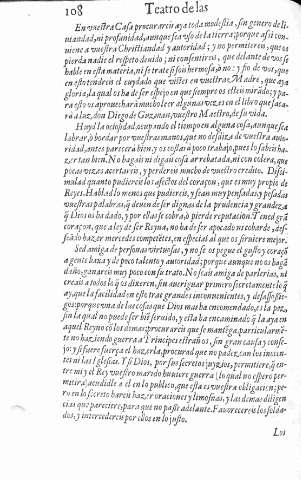 108 Teatro de las
En vuestra Casa procurareis aya toda modestia, sin genero de li-
uiandad, ni profanidad, aunque sea vso de la tierra; porque assi con-
uiene a vuestra Christiandad y autoridad; y no permitireis, que os
pierda nadie el respeto deuido; ni consentireis, que delante de vos se
hable en esta materia, ni se trate si son hermosas, ò no: y fio de vos, que
en esto tendreis el cuydado que vistes en vuestra Madre, que aya
gloria, la qual os ha de ser espejo en que siempre os esteis mirãdo; y pa-
ra esto os aprouecharà mucho leer algunas vezes en el libro que saca-
rà a luz, don Diego de Guzman, vuestro Maestro, de su vida.
Huyd la ociosidad, ocupando el tiempo en alguna cosa, aunque sea
labrar, ò bordar por vuestras manos, que no desdiza de vuestra auto-
ridad, antes parecerà bien, y os costarà poco trabajo, pues lo sabeis ha-
zer tan bien. No hagais ni digais cosa arrebatada, ni con colera, que
pocas vezes acertareis, y perdereis mucho de vuestro credito. Dissi-
mulad quanto pudiereis los afectos del coraçon, que es muy propio de
Reyes. Hablad lo menos que pudiereis, y sean muy pensadas, y pesadas
vuestras palabras, q̃ deuen de ser dignas de la prudencia y grandeza
q̃ Dios os ha dado, y por ellas se cobra, ò pierde reputacion. Tened grã
coraçon, que a ley de ser Reyna, no ha de ser apocado ni cobarde, des-
seãdo hazer mercedes competẽtes, en especial al que os siruiere mejor.
Sed amiga de personas virtuosas, y no se os pegue el gusto y coraçõ
a gente baxa y de poco talento y autoridad; porque aunque no os hagã
daño, ganareis muy poco con su trato. No seais amiga de parlerias, ni
creais a todos lo q̃ os dixeren, sin aueriguar primero secretamente lo q̃
ay, que la facilidad en esto trae grandes inconuenientes, y desassossie-
gos: porque vna de las cosas que Dios mas ha encomendado, es la paz,
sin la qual no puede ser biẽ seruido, y esta ha de encaminar q̃ la aya en
aquel Reyno cõ los demas; procurareis que se mantẽga, particularmẽ-
te no haziendo guerra a Principes estraños, sin gran causa y conse-
jo: y si fuere fuerça el hazerla, procurad que no padezcan los inocen-
tes ni las Iglesias. Y si Dios, por sus secretos juyzios, permitiere, q̃ en-
tre mi y el Rey vuestro marido huuiere guerra (lo qual no espero per-
mitirà) acudidle a el en lo publico, que esta es vuestra obligaciõ; pe-
ro en lo secreto hareis hazer oraciones y limosnas, y las demas diligen-
cias que pareciere, para que no passe adelante. Fauorecereis los solda-
dos, y intercedereis por ellos en lo justo.
Lui